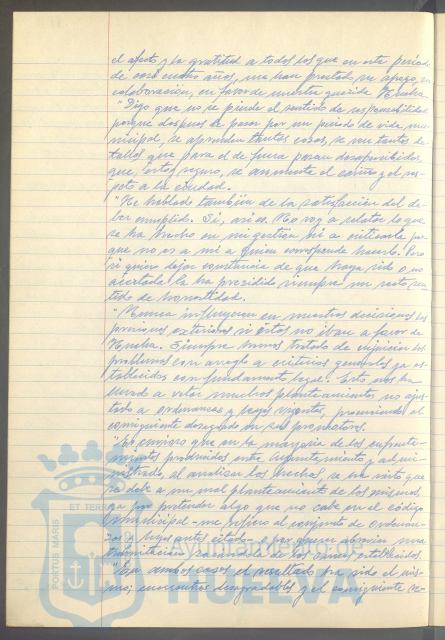 el afecto y la gratitud a todos los que en este período
de casi cuatro años, me han prestado su apoyo, su
colaboración, en favor de nuestra querida Huelva.
"Digo que no se pierde el sentido de responsabilidad
porque después de pasar por un período de vida mu-
nicipal, se aprenden tantas cosas, se ven tantos de-
talles que para el de fuera pasan desapercibidos
que, estoy seguro, se aumenta el cariño y el res-
peto a la ciudad.
"He hablado también de la satisfacción del de-
ber cumplido. Sí, así es. No voy a relatar lo que
se ha hecho en mi gestión ni a criticarlo por-
que no es a mí a quien corresponde hacerlo. Pero
sí quiero dejar constancia de que haya sido o no
acertada la ha presidido siempre un recto sen-
tido de honestidad.
"Nunca influyeron en nuestras decisiones las
presiones exteriores si éstas no iban a favor de
Huelva. Siempre hemos tratado de enjuiciar los
problemas con arreglo a criterios generales ya es-
tablecidos con fundamento legal. Esto nos ha
llevado a vetar muchos planteamientos no ajus-
tados a ordenanzas y leyes vigentes, provocando el
consiguiente desagrado en sus promotores.
que en la mayoría de los enfrenta-
mientos producidos entre Ayuntamiento y admi-
nistrado, al analizar los hechos, se ha visto que
se debe a un mal planteamiento de los mismos,
ya por pretender algo que no cabe en el código
municipal - me refiero al conjunto de Ordenan-
zas y leyes
tramitación razonable de los cauces establecidos.
"En ambos casos el resultado ha sido el mis-
mo; encuentros desagradables y el consiguiente re-
PORTUS MARIS
ET TERR
Ayuntamiento de
HUELVA